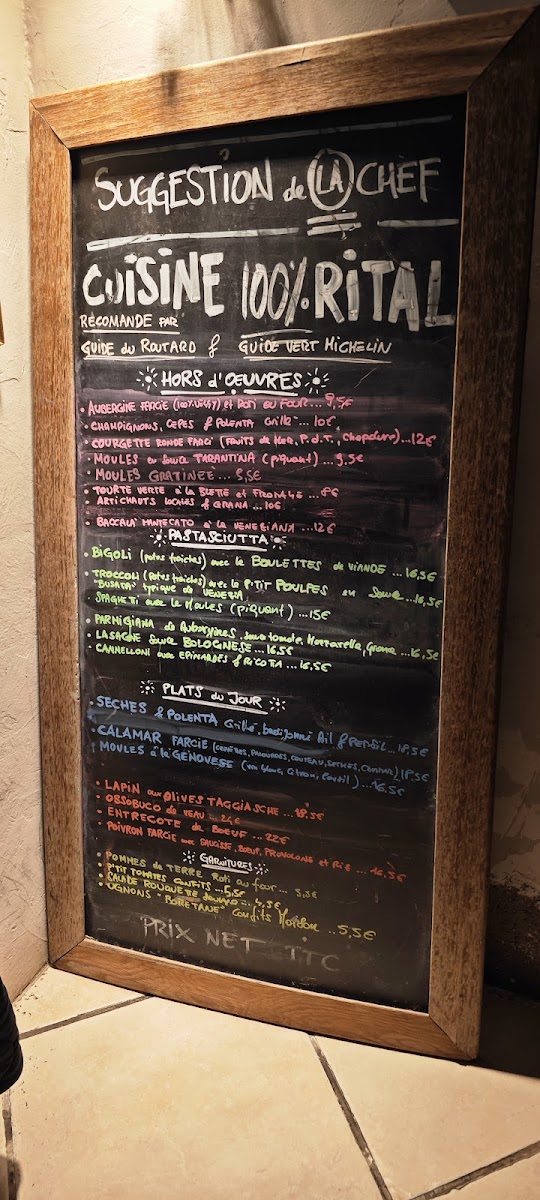 SUGGESTION de LA CHEF
CUISINE 100% RITAL
RECOMANDE PAR
GUIDE du ROUTARD & GUIDE VERT MICHELIN
HORS d'OEUVRES
• AUBERGINE FARCIE et Roti au FOUR ... 9,5€
• CHAMPIGNONS, CEPES & POLENTA Grillé ... 10€
• COURGETTE RONDE FARCI (FRUITS de MER, P.d.T., ...12€
• MOULES en Sauce TARANTINA (piquant) ... 9,5€
• MOULES GRATINEE ... 9,5€
• TOURTE VERTE à la BLETTE et FROMAGE ... 8€
ARTICHAUTS LOCALES & GRANA ... 10€
• BACCALA MANTECATO à la VENEZIANA ... 12€
PASTASCIUTTA
• BIGOLI (pates fraiches) avec le BOULETTES de VIANDE ... 16,5€
• TROCCOLI (Pates fraiches) avec le P'TIT POULPES en Sauce ...16,5€
"BUSARA" typique de VENEZIA
SPAGHETTI avec le Moules (piquant) ... 15€
• PARMIGIANA de Aubergines, sauce tomate, Mozzarella, Grana ... 16,5€
• LASAGNE Sauce BOLOGNESE ... 16.5€
• CANNELLONI aux EPINARDS & RICOTTA ... 16,5€
PLATS du JOUR
• SECHES & POLENTA Grillé, Ail & Persil... 18,5€
• CALAMAR FARCIE 18,5€
MOULES à la GENOVESE (vin blanc, Citron, Persil) ... 16,5€
• LAPIN aux OLIVES TAGGIASCHE ... 18,5€
• OSSOBUCO de VEAU ... 24€
• ENTRECOTE de BOEUF ... 22€
• POIVRON FARCIE avec SAUCISSE, BOEUF, PROVOLONE et RIZ ... 16,5€
GARNITURES
• POMMES de TERRE Roti au four ... 5,5€
• P'TIT TOMATES CONFITS ... 5,5€
• SALADE ROUQUETTE ... 4,5€
• OGNONS "BORETANE" Confits Maison ... 5,5€
PRIX NET TTC